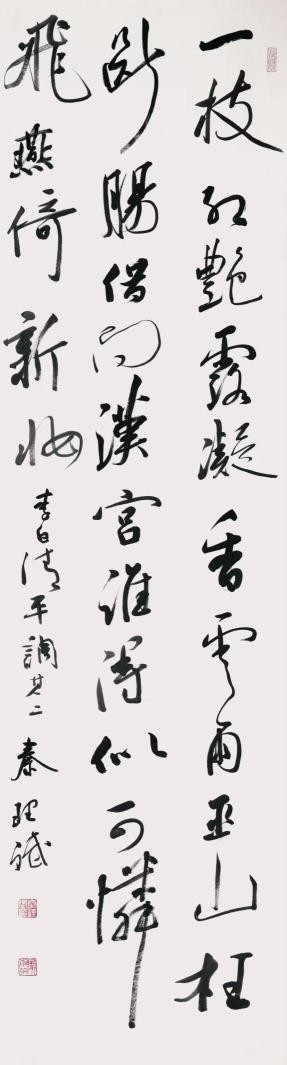 一枝红艳露凝香云雨巫山枉
断肠借问汉宫谁得似可怜
飞燕倚新妆
李白清平调其二 秦理斌